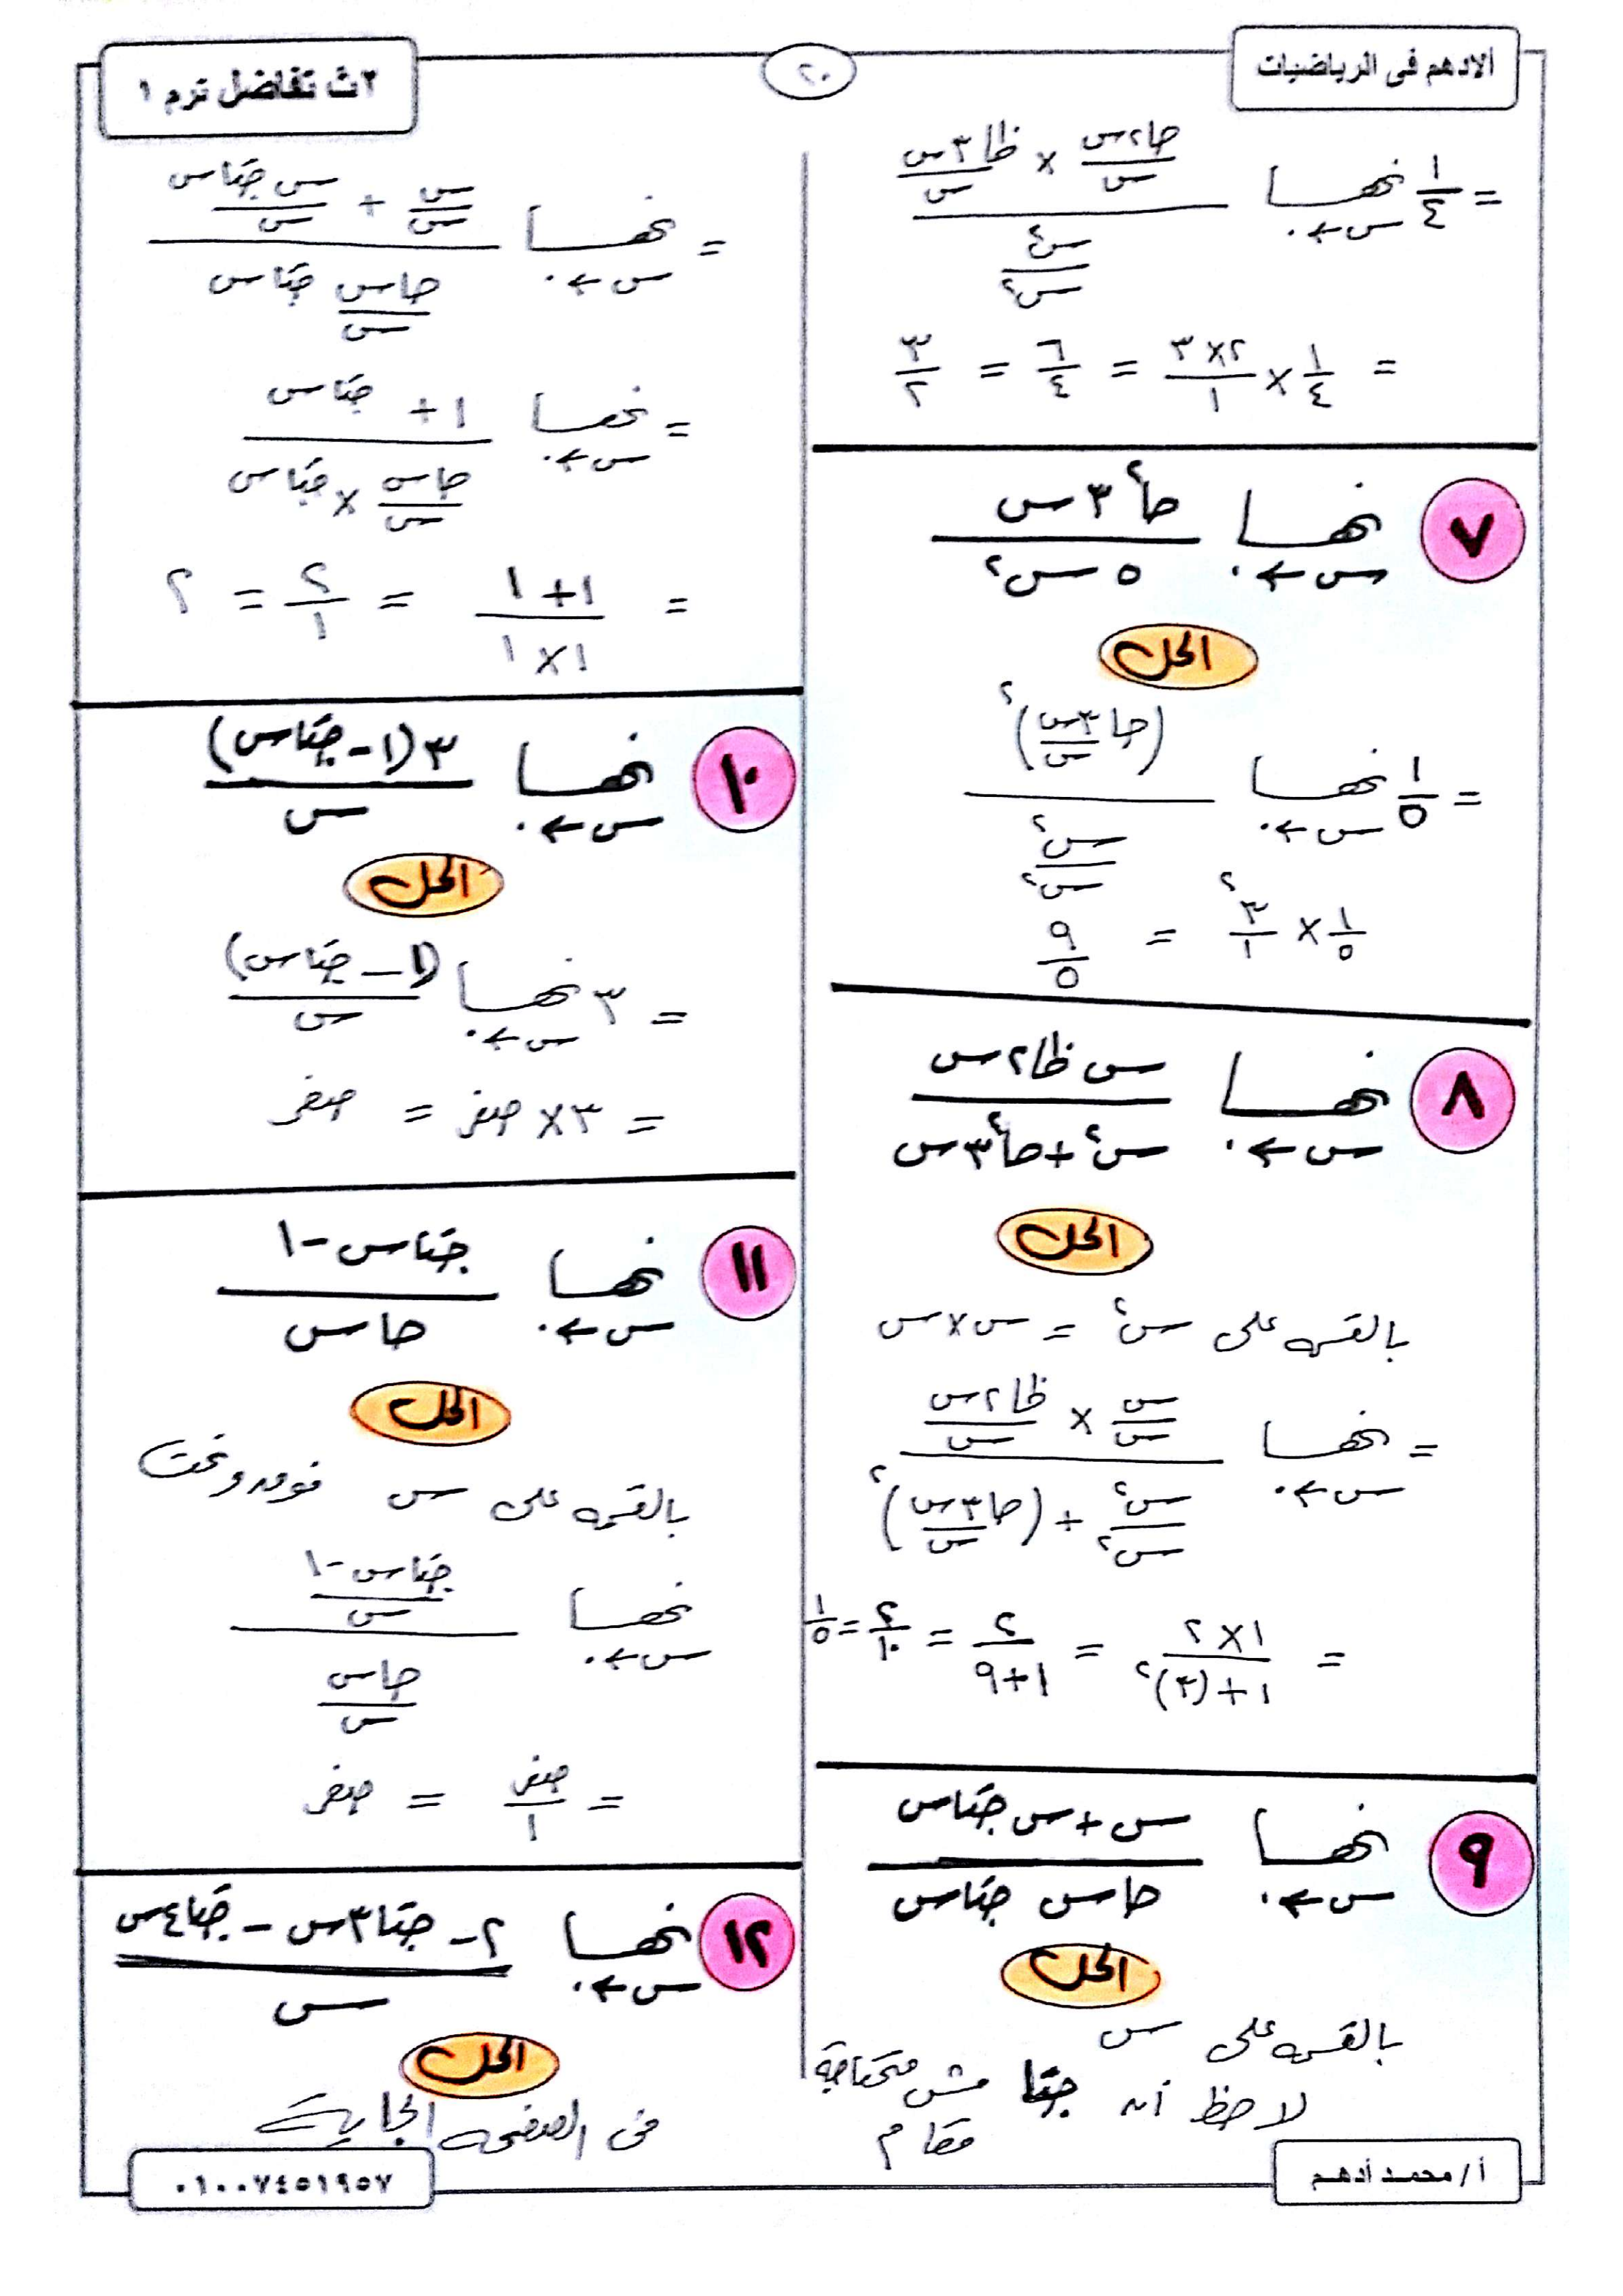 الادهم فى الرياضيات
٢٠
٢ث تفاضل ترم ١
= ١/٤ نهــا س←٠ (حا٢س/س × ظا٣س/س) / (س٢/س٢)
= ١/٤ × ٣×٢/١ = ٦/٤ = ٣/٢
٧ نهــا س←٠ حا٢ ٣س / ٥س٢
الحل
= ١/٥ نهــا س←٠ (حا٣س/س)٢ / (س٢/س٢)
١/٥ × ٣٢/١ = ٩/٥
٨ نهــا س←٠ س ظا٢س / س٢+حا٢ ٣س
الحل
بالقسمه على س٢ = س×س
= نهــا س←٠ (س/س × ظا٢س/س) / (س٢/س٢ + (حا٣س/س)٢)
= ١×٢ / ١+(٣)٢ = ٢/١+٩ = ٢/١٠ = ١/٥
٩ نهــا س←٠ س+س جتاس / حاس جتاس
الحل
بالقسمه على س
لاحظ أنه جتا مش محتاجة
مقام
= نهــا س←٠ (س/س + س جتاس/س) / (حاس/س جتاس)
= نهــا س←٠ ١+ جتاس / (حاس/س × جتاس)
= ١+١ / ١×١ = ٢/١ = ٢
١٠ نهــا س←٠ ٣(١-جتاس) / س
الحل
= ٣ نهــا س←٠ (١-جتاس) / س
= ٣× صفر = صفر
١١ نهــا س←٠ جتاس-١ / حاس
الحل
بالقسمه على س فوق وتحت
نهــا س←٠ (جتاس-١/س) / (حاس/س)
= صفر/١ = صفر
١٢ نهــا س←٠ ٢-جتا٣س-جتا٤س / س
الحل
فى الصفحه الجاية
أ/ محمد أدهم
٠١٠٠٧٤٥١٩٥٧